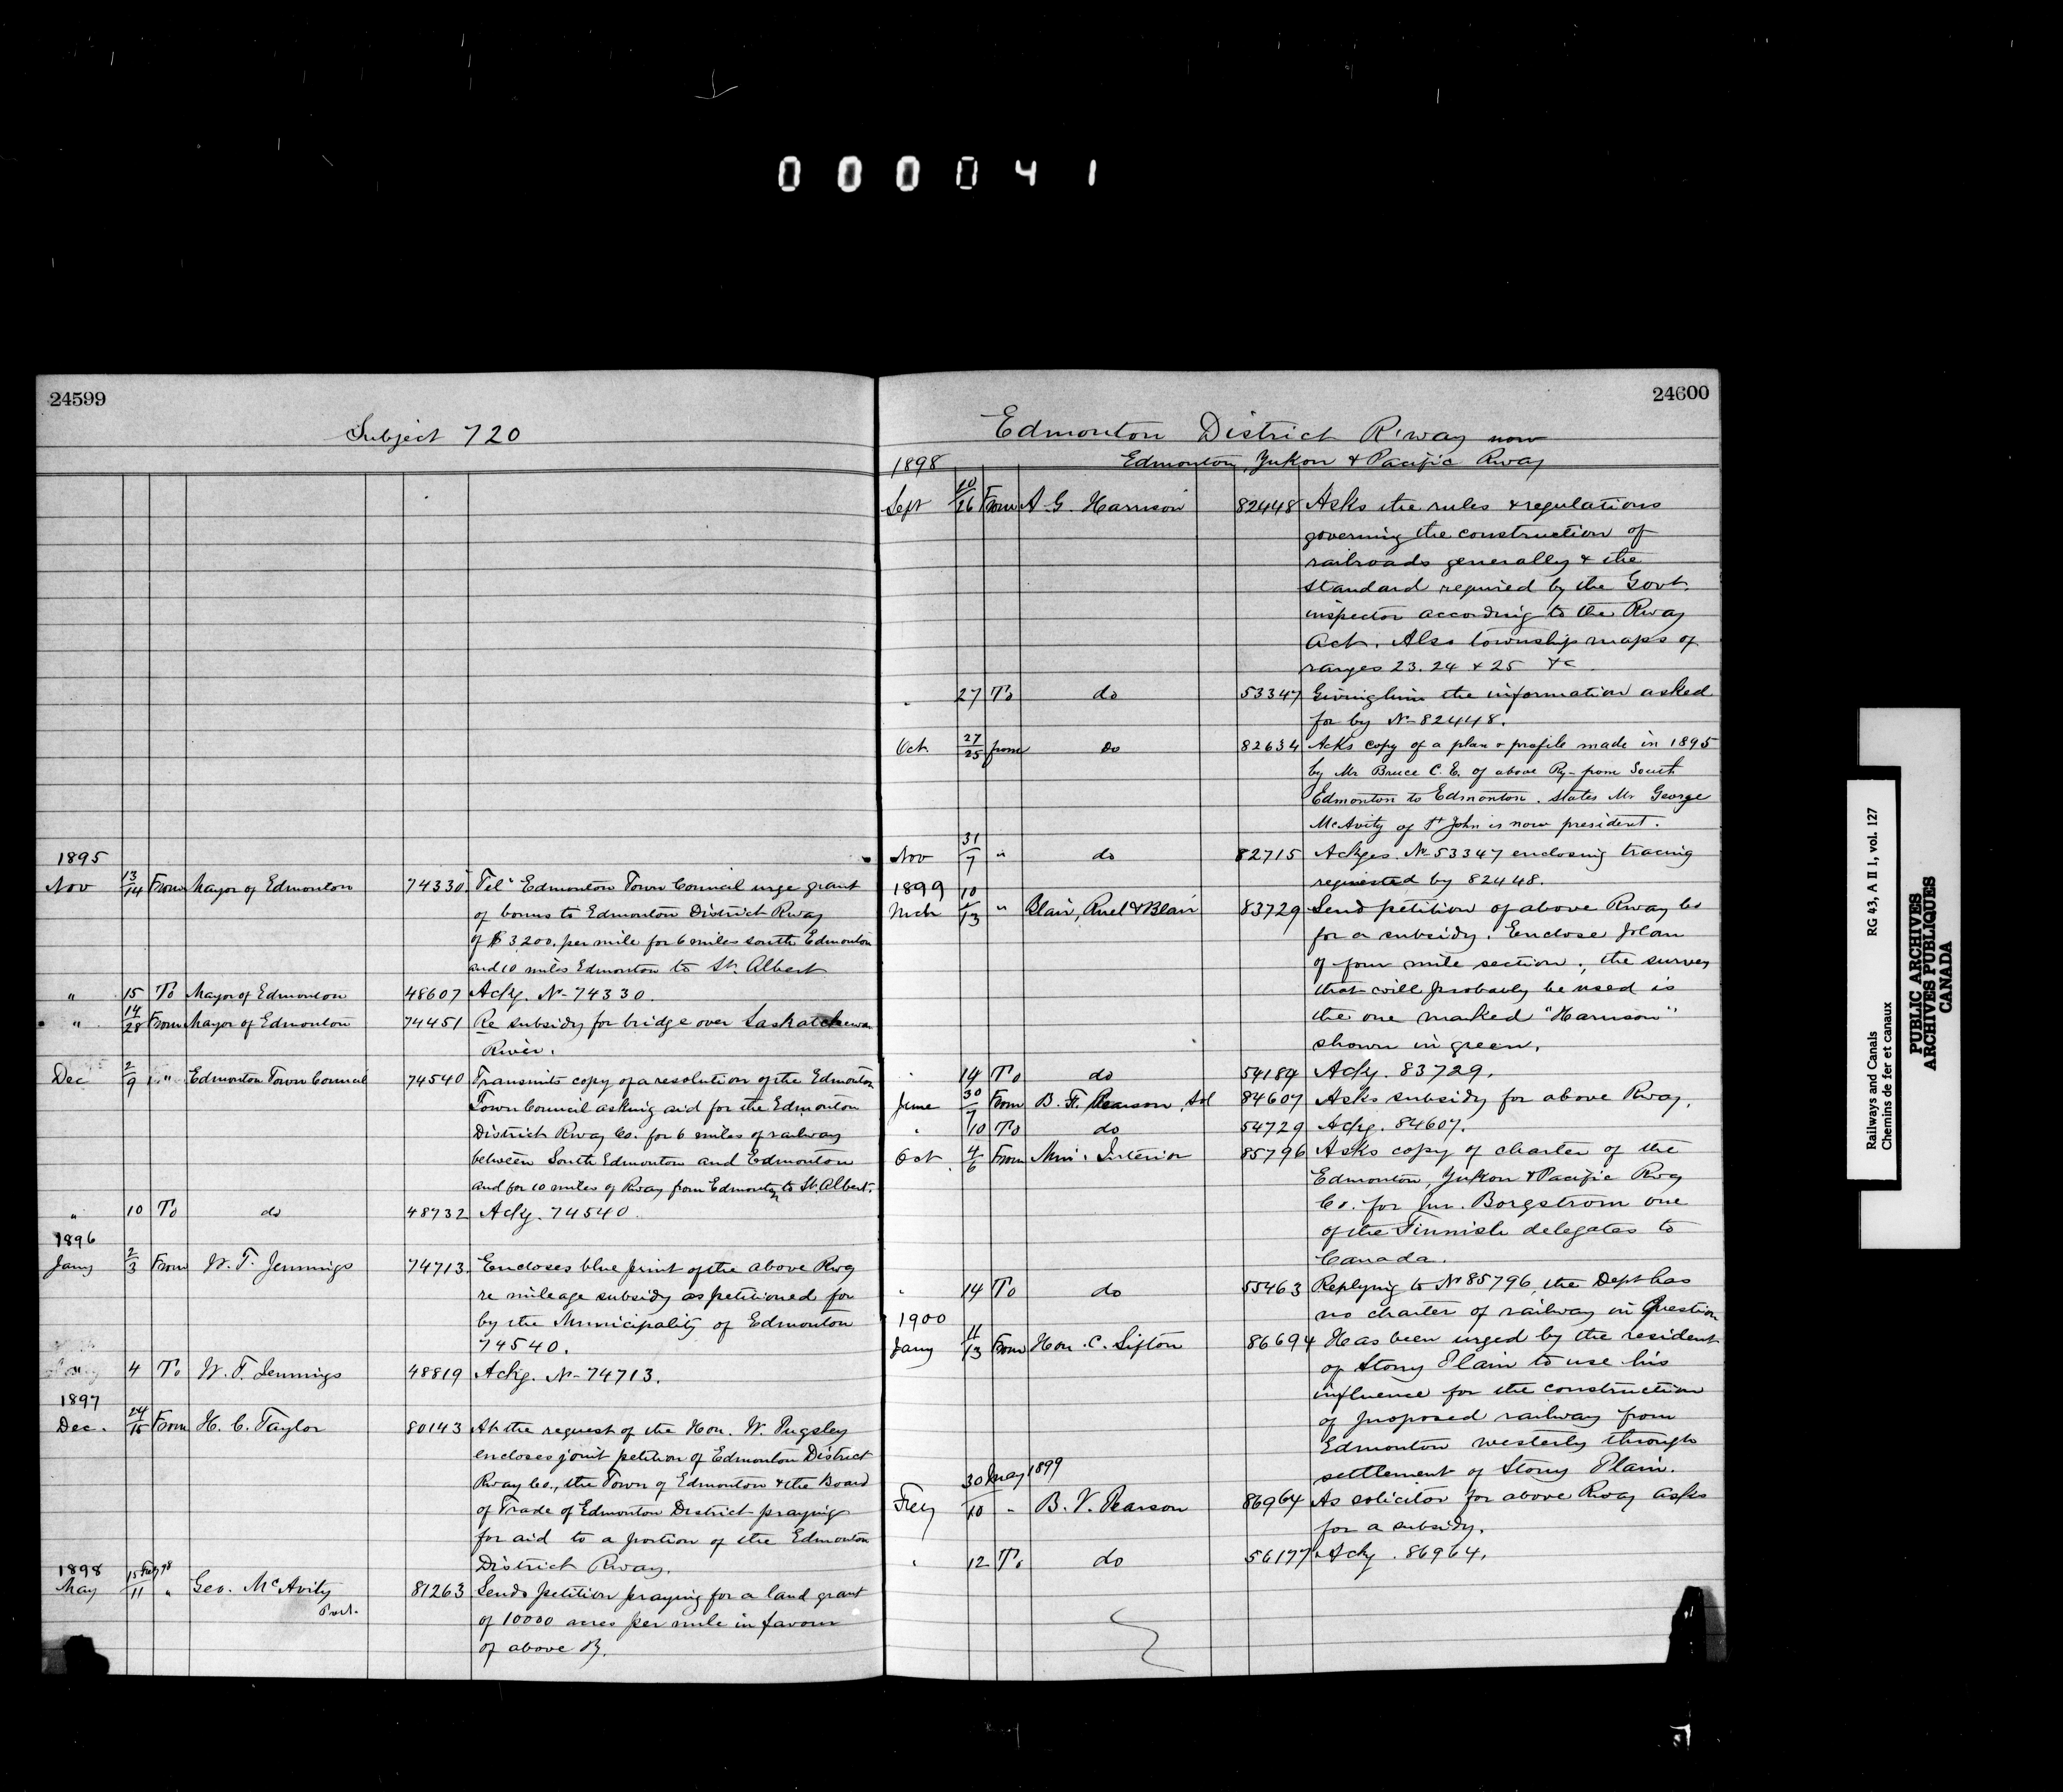 000041
24599
Subject 720
1895
Nov 13/14 From Mayor of Edmonton 74330 Tel. Edmonton Town Council urge grant
of bonus to Edmonton District Rway
of $3200. per mile for 6 miles south Edmonton
and 10 miles Edmonton to St. Albert
" 15 To Mayor of Edmonton 48607 Ackg. No 74330.
" 14/28 From Mayor of Edmonton 74451 Re subsidy for bridge over Saskatchewan
River.
Dec 2/9 " Edmonton Town Council 74540 Transmits copy of a resolution of the Edmonton
Town Council asking aid for the Edmonton
District Rway Co. for 6 miles of railway
between South Edmonton and Edmonton
and for 10 miles of Rway from Edmonton to St. Albert.
" 10 To do 48732 Ackg. 74540.
1896
Jany 2/3 From W. T. Jennings 74713 Encloses blue print of the above Rwy
re mileage subsidy as petitioned for
by the Municipality of Edmonton
74540.
" 4 To W. T. Jennings 48819 Ackg. No 74713.
1897
Dec. 24/15 From H. C. Taylor 80143 At the request of the Hon. W. Pugsley
encloses joint petition of Edmonton District
Rway Co., the Town of Edmonton & the Board
of Trade of Edmonton District praying
for aid to a portion of the Edmonton
District Rway.
1898
May 15 Feby 98/11 " Geo. McAvity 81263 Sends petition praying for a land grant
Part.
of 10000 acres per mile in favour
of above Ry.
24600
Edmonton District R'way now
Edmonton, Yukon & Pacific Rway
1898
Sept 20/26 From A. G. Harrison 82448 Asks the rules & regulations
governing the construction of
railroads generally & the
standard required by the Govt.
inspector according to the Rway
Act. Also township maps of
ranges 23. 24 & 25 &c
" 27 To do 53347 Giving him the information asked
for by No 82448.
Oct 27/25 from do 82634 Asks copy of a plan & profile made in 1895
by Mr Bruce C. E. of above Ry- from South
Edmonton to Edmonton. States Mr George
McAvity of St John is now president.
Nov 31/7 " do 82715 Ackges. No 53347 enclosing tracing
requested by 82448.
1899
Mch 10/13 " Blair, Ruel & Blair 83729 Send petition of above Rway Co
for a subsidy. Enclose plan
of four mile section, the survey
that will probably be used is
the one marked "Harrison"
shown in green.
" 14 To do 54184 Ackg. 83729.
June 30/7 From B. F. Pearson, Sol 84607 Asks subsidy for above Rway.
" 10 To do 54729 Ackg. 84607.
Oct 4/6 From Min: Interior 85796 Asks copy of charter of the
Edmonton, Yukon & Pacific Rwy
Co. for Mr. Borgstrom one
of the Finnish delegates to
Canada.
" 14 To do 55463 Replying to No 85796, the Dept has
no charter of railway in question
1900
Jany 11/13 From Hon. C. Sifton 86694 Has been urged by the resident
of Stony Plain to use his
influence for the construction
of proposed railway from
Edmonton westerly through
settlement of Stony Plain.
30 May 1899
Feby /10 " B. V. Pearson 86964 As solicitor for above Rway asks
for a subsidy.
" 12 To do 56177 Ackg. 86964.
Railways and Canals RG 43, A II 1, vol. 127
Chemins de fer et canaux
PUBLIC ARCHIVES
ARCHIVES PUBLIQUES
CANADA